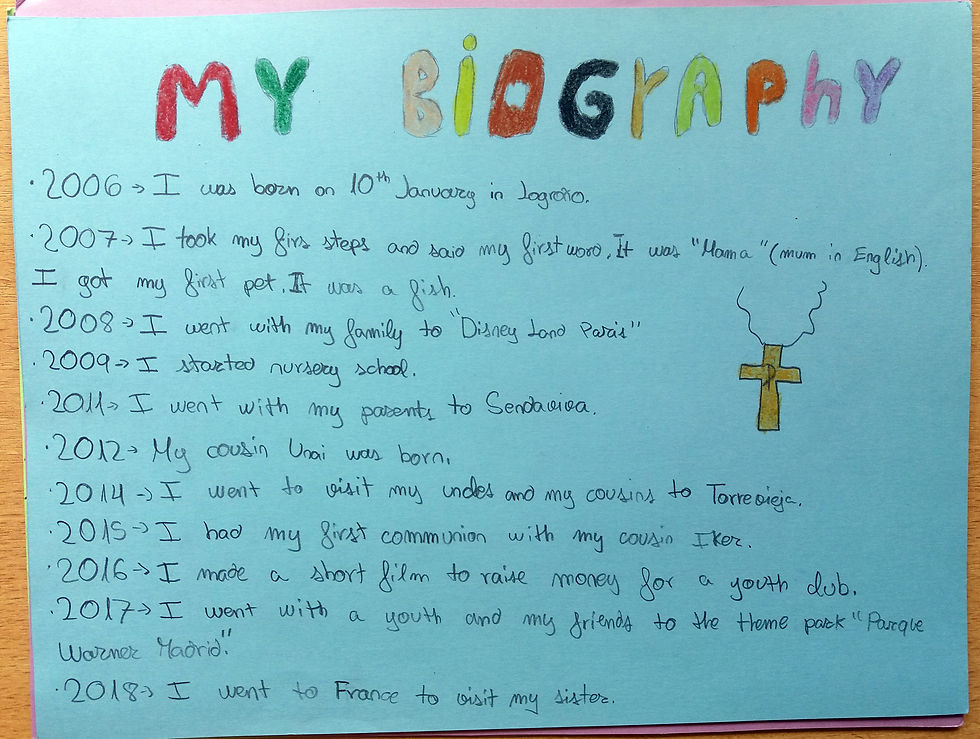 MY BiOGrAPhY
· 2006 → I was born on 10th January in Logroño.
· 2007 → I took my firs steps and said my first word. It was "Mama" (mum in English).
I got my first pet. It was a fish.
· 2008 → I went with my family to "Disney Land París"
· 2009 → I started nursery school.
· 2011 → I went with my parents to Sendaviva.
· 2012 → My cousin Unai was born.
· 2014 → I went to visit my uncles and my cousins to Torrevieja.
· 2015 → I had my first communion with my cousin Iker.
· 2016 → I made a short film to raise money for a youth club.
· 2017 → I went with a youth and my friends to the theme park "Parque
Warner Madrid".
· 2018 → I went to France to visit my sister.